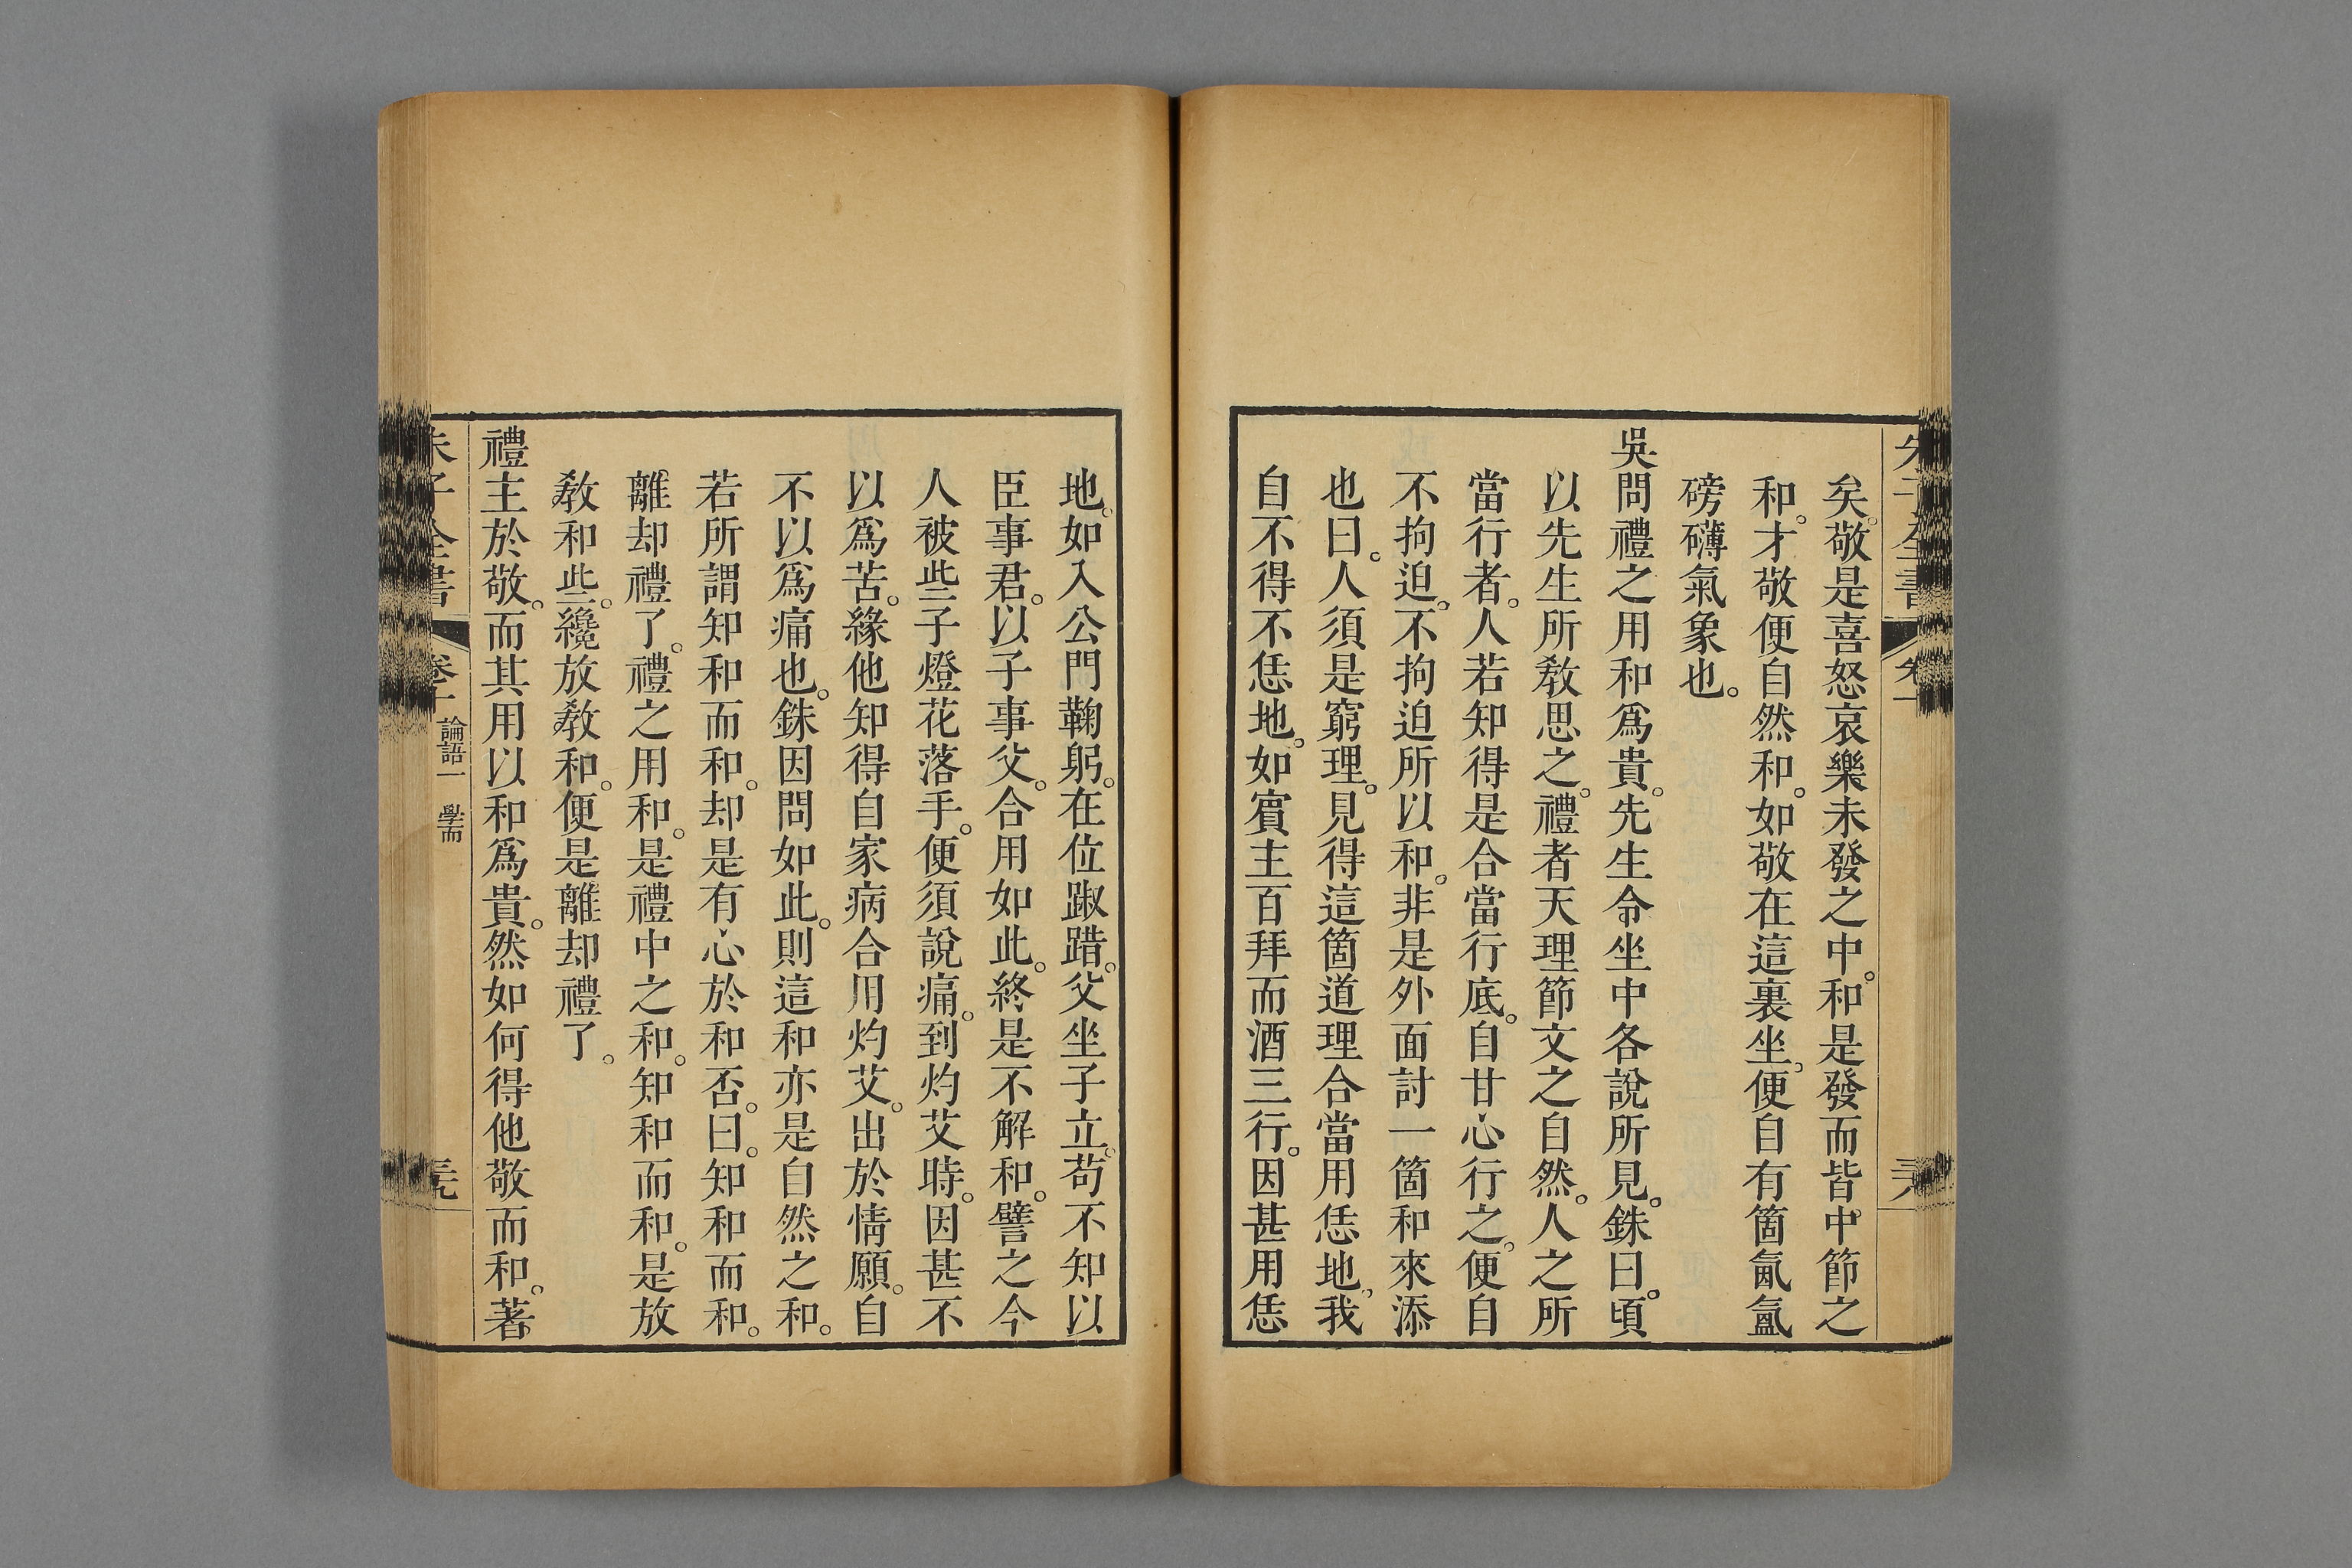 矣。敬是喜怒哀樂未發之中。和是發而皆中節之
和。才敬便自然和。如敬在這裏坐。便自有箇氤氳
磅礴氣象也。
吳問禮之用和爲貴。先生令坐中各說所見。銖曰。頃
以先生所敎思之。禮者天理節文之自然。人之所
當行者。人若知得是合當行底。自甘心行之。便自
不拘迫。不拘迫所以和。非是外面討一箇和來添
也曰。人須是窮理。見得這箇道理合當用恁地。我
自不得不恁地。如賓主百拜而酒三行。因甚用恁
地。如入公門鞠躬。在位踧踖。父坐子立。苟不知以
臣事君。以子事父。合用如此。終是不解和。譬之今
人被些子燈花落手。便須說痛。到灼艾時。因甚不
以爲苦。緣他知得自家病合用灼艾。出於情願。自
不以爲痛也。銖因問如此。則這和亦是自然之和。
若所謂知和而和。却是有心於和否。曰。知和而和。
離却禮了。禮之用和。是禮中之和。知和而和。是放
敎和些。纔放敎和。便是離却禮了。
禮主於敬。而其用以和爲貴。然如何得他敬而和。著
朱子全書 卷十 論語一 學而 三九